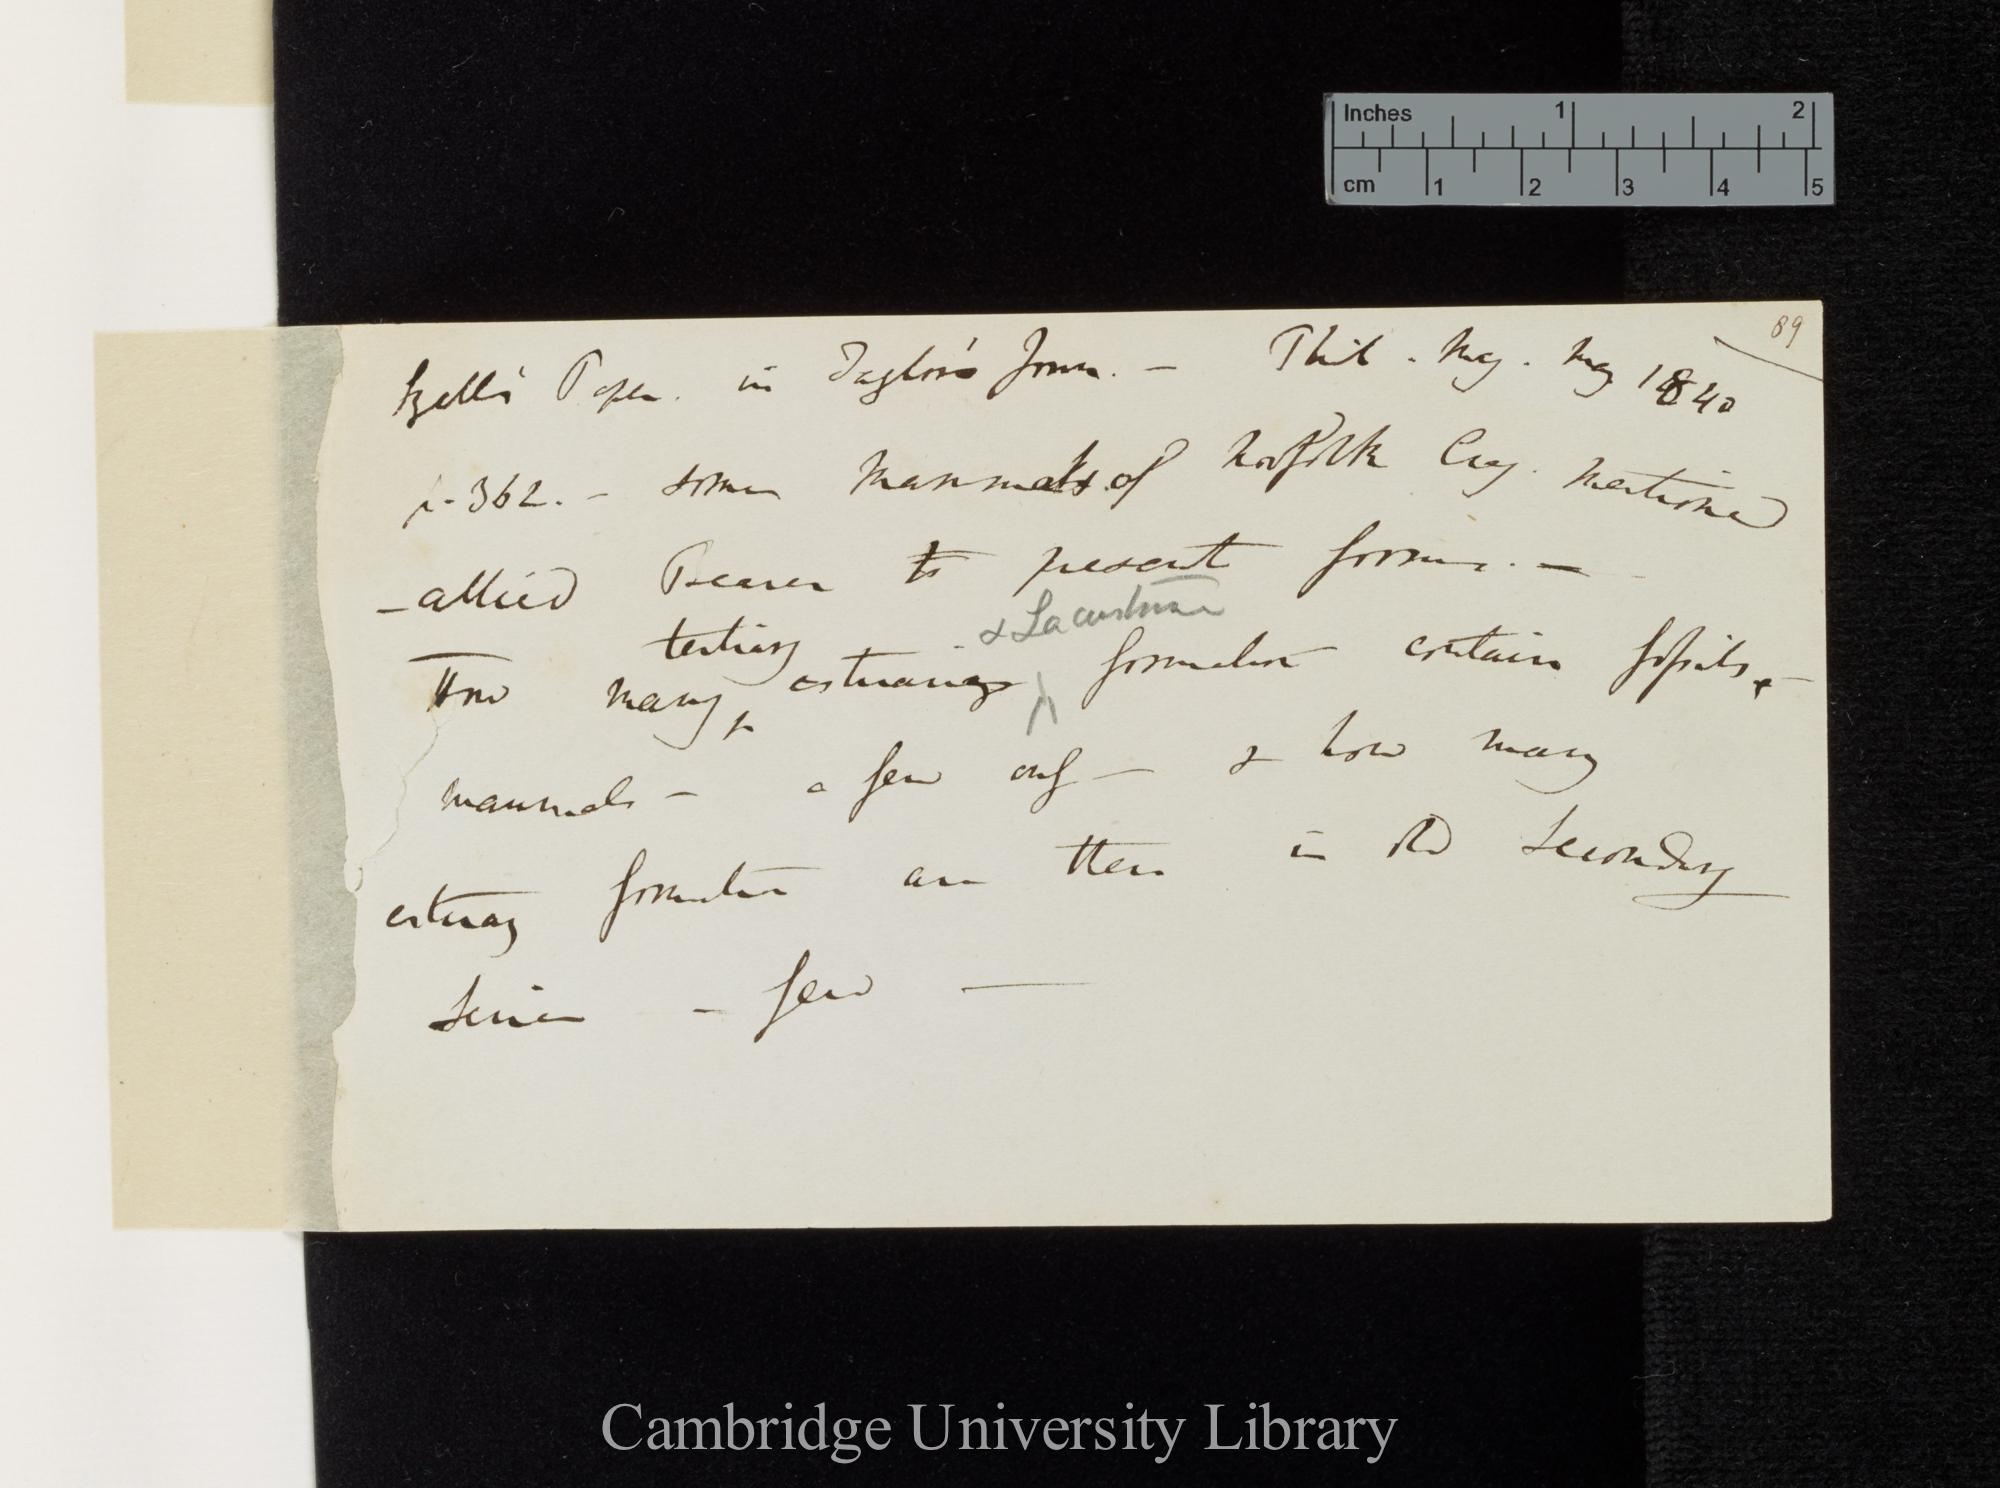 Inches 1 2
cm 1 2 3 4 5
89
Lyell's Paper. in Taylor's Journ. — Phil. Mag. May 1840
p. 362. — some Mammals of Norfolk Crag. Mentioned
— allied Beaver to present forms. —
How many tertiary estuary & Lacustrine formation contain fossils
mammals — a few only — & how many
estuary formation are there in old Secondary
Series — few —
Cambridge University Library